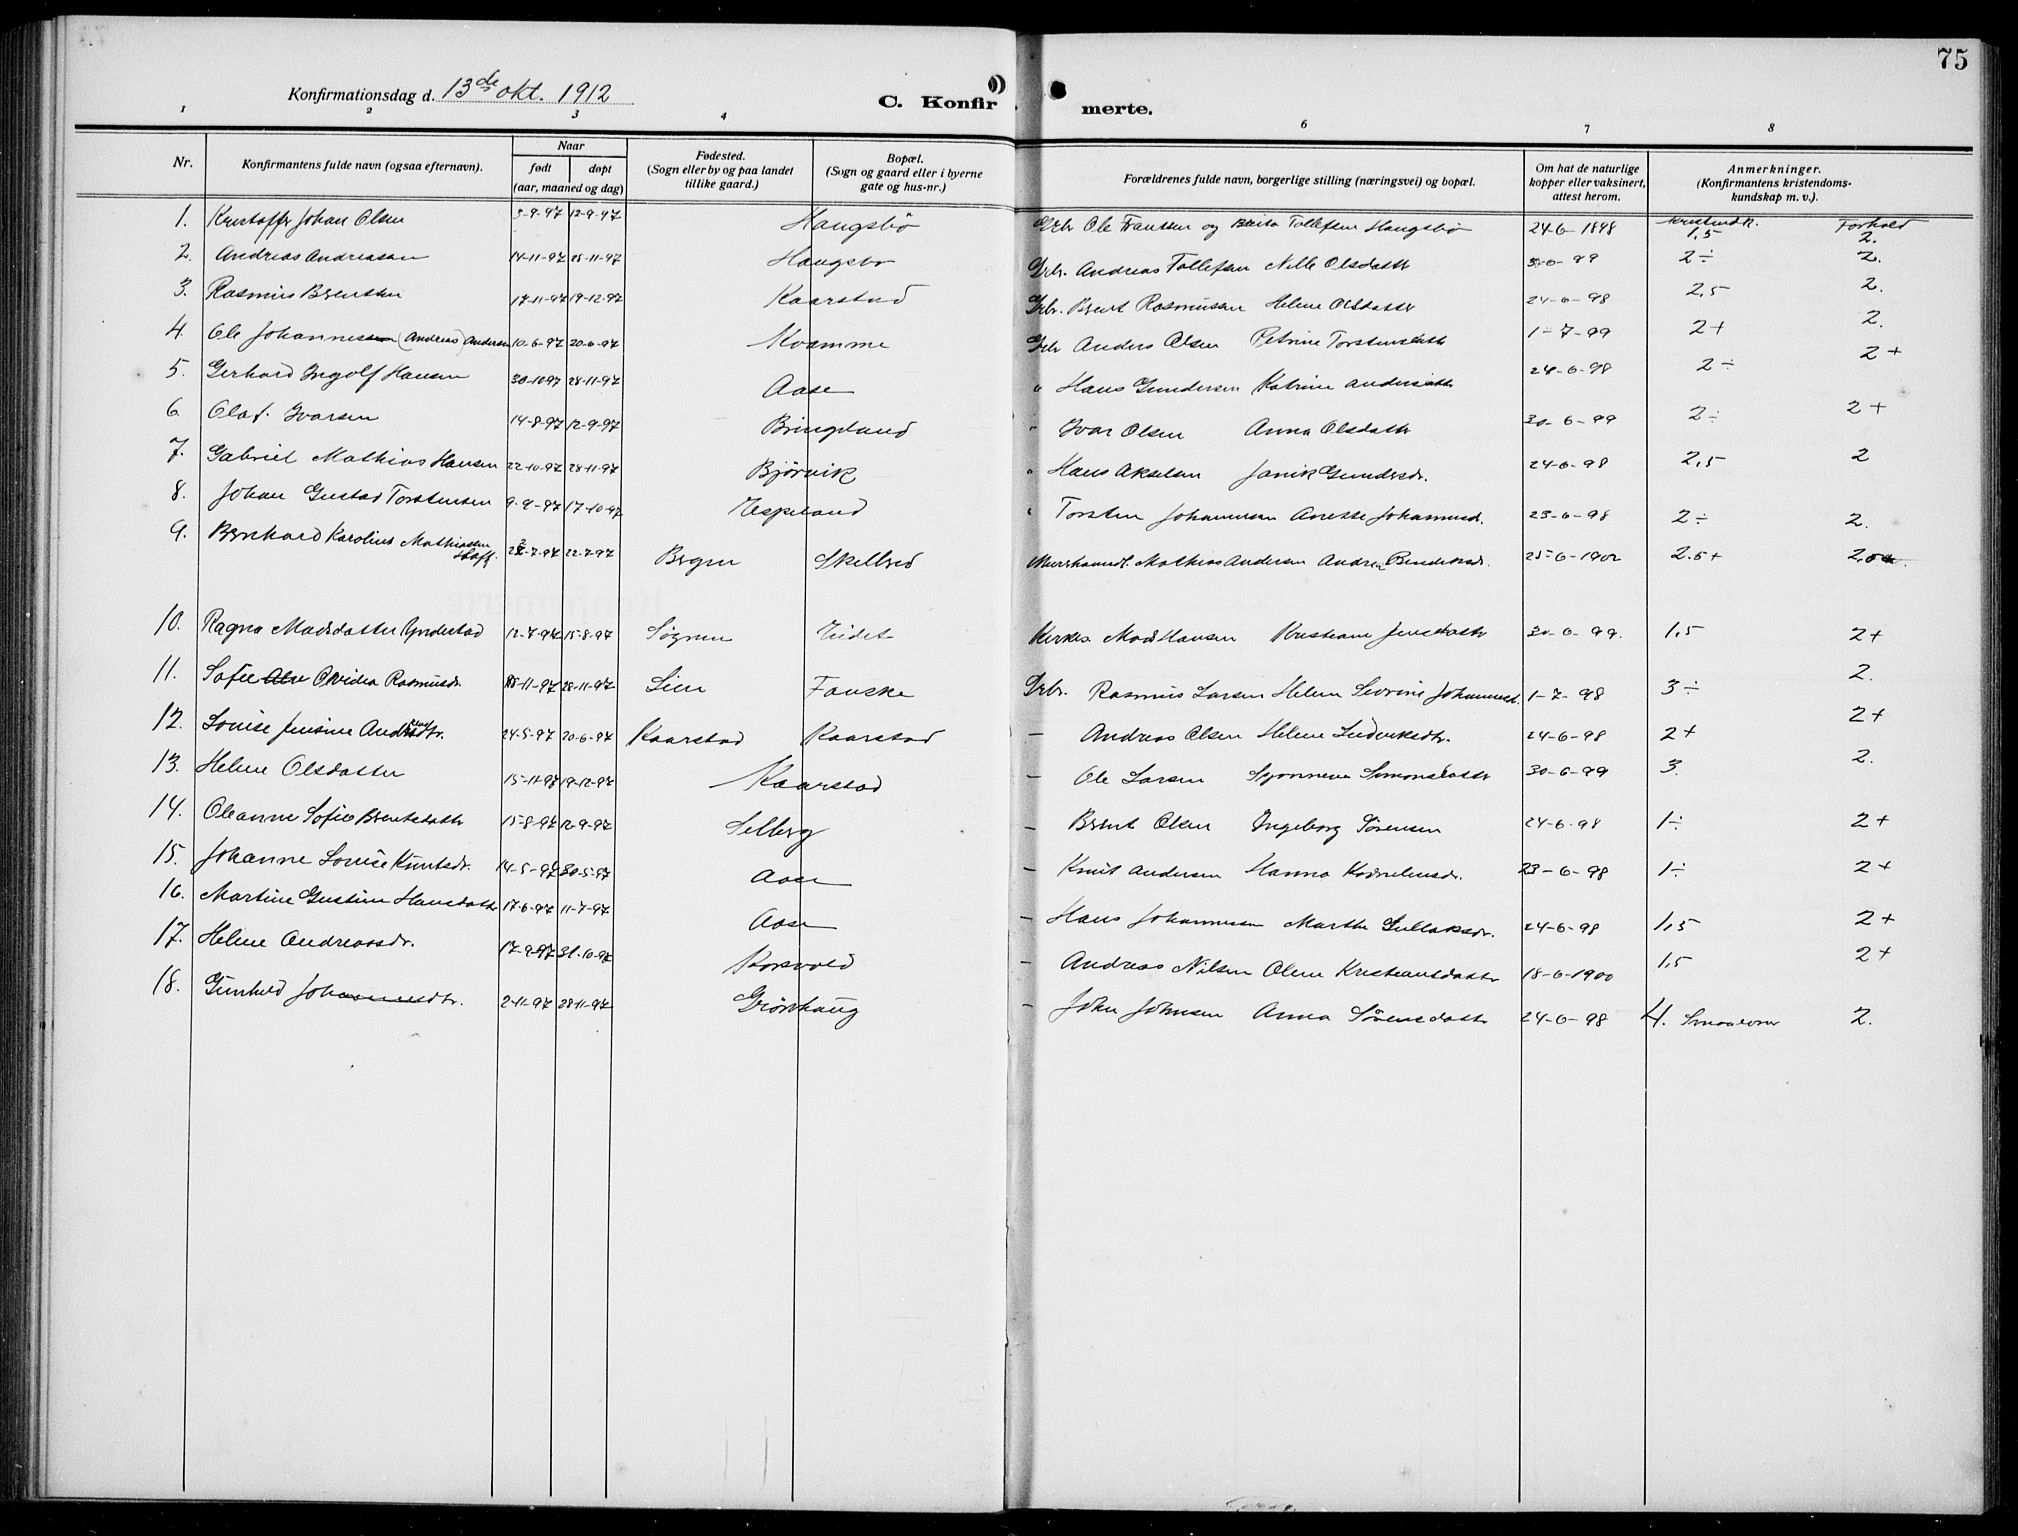 75
Konfirmationsdag d. 13de okt. 1912
C. Konfirmerte.
1 2 3 4 6 7 8
Nr. Konfirmantens fulde navn (ogsaa efternavn). Naar født døpt (aar, maaned og dag) Fødested. (Sogn eller by og paa landet tillike gaard.) Bopæl. (Sogn og gaard eller i byerne gate og hus-nr.) Forældrenes fulde navn, borgerlige stilling (næringsvei) og bopæl. Om hat de naturlige kopper eller vaksinert, attest herom. Anmerkninger. (Konfirmantens kristendomskundskap m. v.).
Kristendk. Forhold
1. Kristoffer Johan Olsen 3-9-97 12-9-97 Haugsbö Grbr Ole Franssen og Berta Tollefsen Haugsbö 24-6-1898 1,5 2.
2. Andreas Andreassen 14-11-97 28-11-97 Haugsbö Grbr. Andreas Tollefsen Nille Olsdattr 30-6-99 2÷ 2.
3. Rasmus Berntsen 17-11-97 19-12-97 Kaarstad Grbr. Bernt Rasmussen Helene Olsdattr 24-6-98 2,5 2.
4. Ole Johannessen (Andreas) Andersen 10-6-97 20-6-97 Kvamme Grbr Anders Olsen Petrine Torstensdattr 1-7-99 2+ 2.
5. Gerhard Ingolf Hansen 30-10-97 28-11-97 Aase " Hans Gundersen Katrine Andersdattr 24-6-98 2÷ 2+
6. Olaf Ivarsen 14-8-97 12-9-97 Bringeland " Ivar Olsen Anna Olsdattr 30-6-99 2÷ 2+
7. Gabriel Mathias Hansen 22-10-97 28-11-97 Bjørvik " Hans Akselsen Janik Gundersdr. 24-6-98 2,5 2
8. Johan Gustav Torstensen 9-9-97 17-10-97 Espeland " Torsten Johannesen Anette Johannesd. 23-6-98 2÷ 2.
9. Bernhard Karolius Mathiassen 22-7-97 Bergen Skilbred Mathias Andersen Andrea Bendiksdr. 25-6-1902 2.5+
10. Ragna Madsdatter Yndestad 12-7-97 15-8-97 Søgnen Eidet Kirkes. Mads Hansen Kristiane Jensdattr 30-6-99. 1,5 2+
11. Sofie Ovidia Rasmusdr. 28-11-97 Lien Fauske Grbr. Rasmus Larsen Helene Severine Johannesd. 1-7-98 3÷ 2.
12. Louise Jensine Andreasdtr. 24-5-97 20-6-97 Kaarstad Kaarstad — Andreas Olsen Helene Ludviksdtr. 24-6-98 2+ 2+
13. Helene Olsdatter 15-11-97 19-12-97 Kaarstad — Ole Larsen Synneve Simonsdattr 30-6-99 3. 2.
14. Oleanne Sofie Berntsdattr 15-8-97 12-9-97 Selberg — Bernt Olsen Ingeborg Sørensen 24-6-98 1÷ 2+
15. Johanne Louise Knutsdr. 14-5-97 30-5-97 Aase — Knut Andersen Hanna Kornelinsdr. 23-6-98 1÷ 2+
16. Martine Gustine Hansdattr 17-6-97 11-7-97 Aase — Hans Johannessen Marthe Gullaksdr. 24-6-98 1,5 2+
17. Helene Andreasdr. 17-9-97 31-10-97 Korsvold — Andreas Nilsen Olene Kristiansdattr 18-6-1900 1,5 2+
18. Gunhild Johannesdtr. 2-11-97 28-11-97 Grönhaug — John Johnsen Anna Sørensdattr 24-6-98 4. 2.